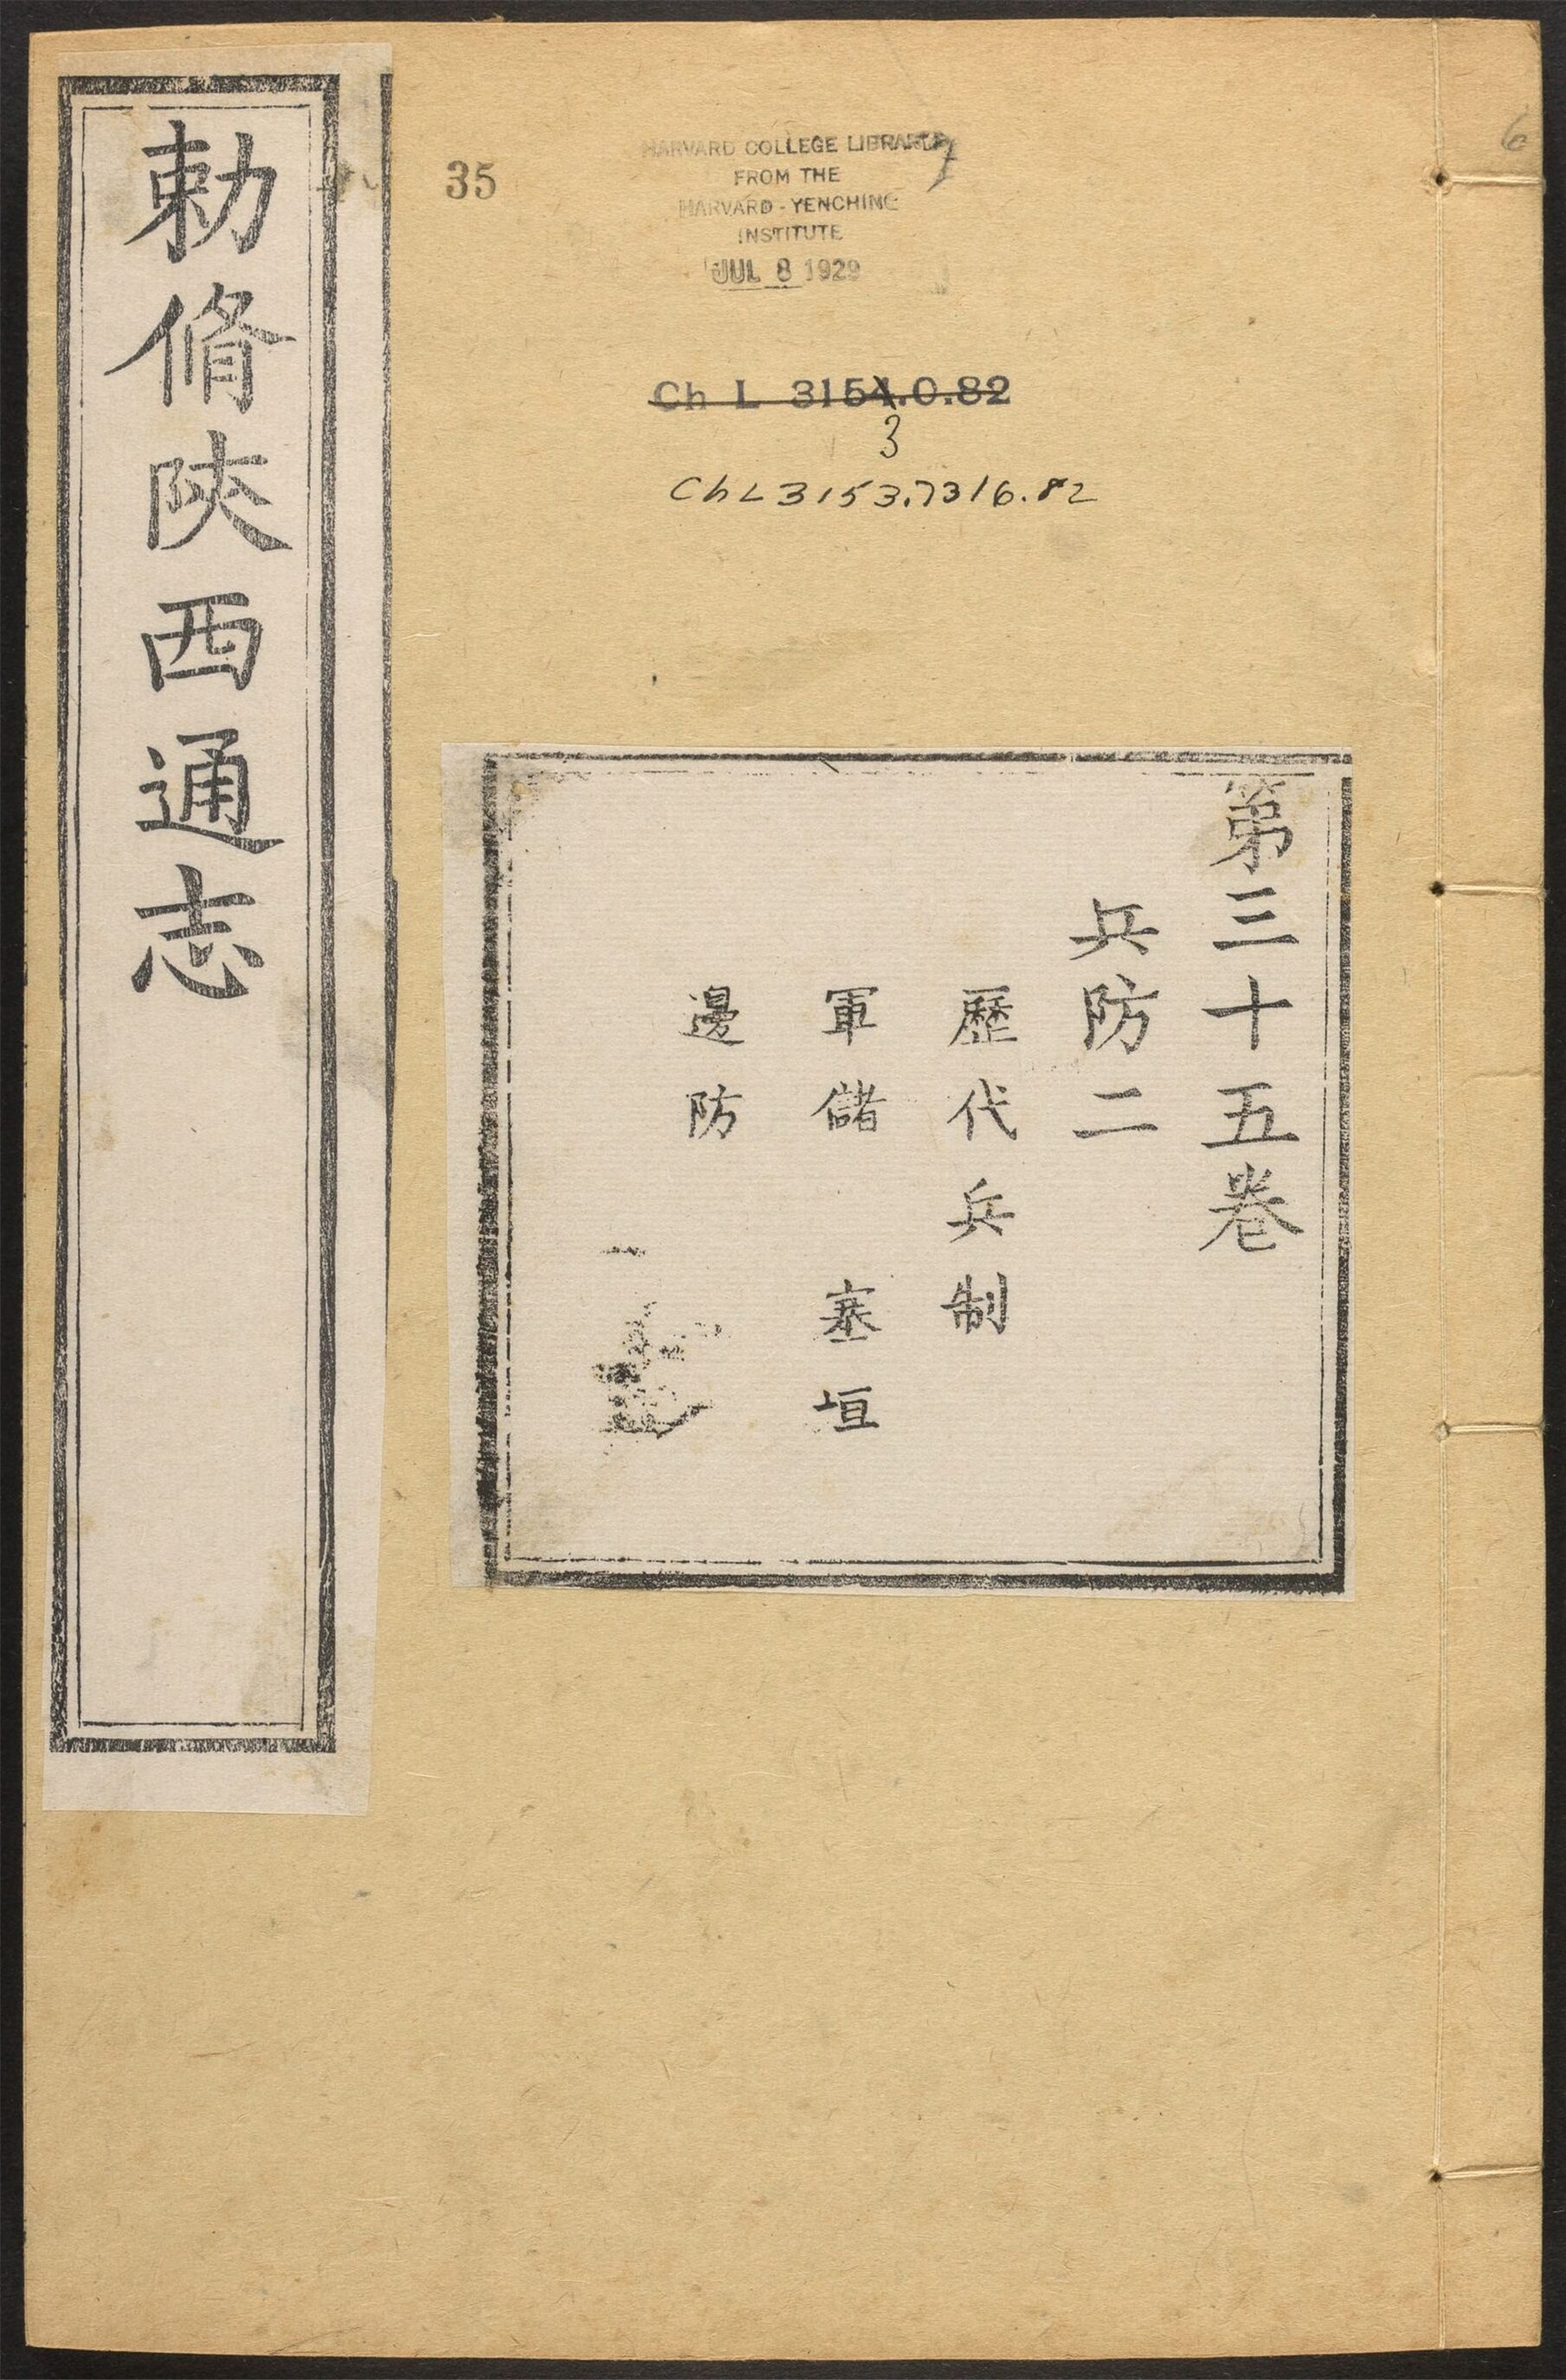 勅脩陝西通志
35
HARVARD COLLEGE LIBRARY
FROM THE
HARVARD-YENCHING
INSTITUTE
JUL 8 1929
Ch L 3154.0.82
3
ChL3153.7316.82
6
第三十五卷
兵防二
歷代兵制
軍儲 塞垣
邊防